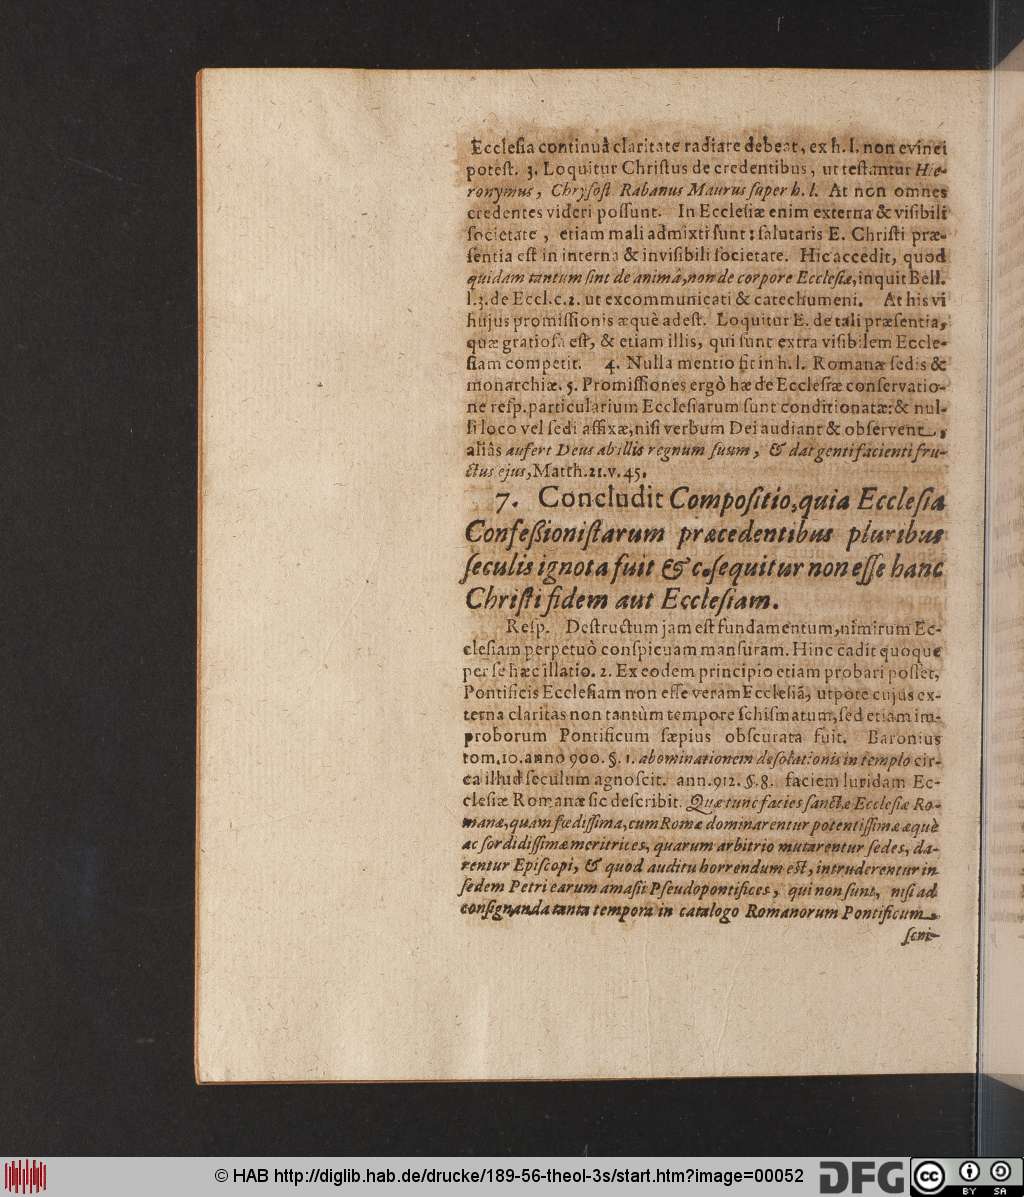 Ecclesia continuâ claritate radiare debeat, ex h. l. non evinci
potest. 3. Loquitur Christus de credentibus, ut testantur Hie-
ronymus, Chrysost. Rabanus Maurus super h. l. At non omnes
credentes videri possunt. In Ecclesiæ enim externa & visibili
societate, etiam mali admixti sunt: salutaris E. Christi præ-
sentia est in interna & invisibili societate. Hic accedit, quod
quidam tantum sint de animâ, non de corpore Ecclesiæ, inquit Bell.
l. 3. de Eccl. c. 2. ut excommunicati & catechumeni. At his vi
hujus promissionis æquè adest. Loquitur E. de tali præsentia,
quæ gratiosa est, & etiam illis, qui sunt extra visibilem Eccle-
siam competit. 4. Nulla mentio fit in h. l. Romanæ sedis &
monarchiæ. 5. Promissiones ergò hæ de Ecclesiæ conservatio-
ne resp. particularium Ecclesiarum sunt conditionatæ: & nul-
li loco vel sedi affixæ, nisi verbum Dei audiant & observent,
aliâs aufert Deus ab illis regnum suum, & dat genti facienti fru-
ctus ejus, Matth. 21. v. 45.
7. Concludit Compositio, quia Ecclesia
Confessionistarum præcedentibus pluribus
seculis ignota fuit & c. sequitur non esse hanc
Christi fidem aut Ecclesiam.
Resp. Destructum jam est fundamentum, nimirum Ec-
clesiam perpetuò conspicuam mansuram. Hinc cadit quoque
per se hæc illatio. 2. Ex eodem principio etiam probari posset,
Pontificis Ecclesiam non esse veram Ecclesiā, utpote cujus ex-
terna claritas non tantùm tempore schismatum, sed etiam im-
proborum Pontificum sæpius obscurata fuit. Baronius
tom. 10. anno 900. §. 1. abominationem desolationis in templo cir-
ca illud seculum agnoscit. ann. 912. §. 8. faciem luridam Ec-
clesiæ Romanæ sic describit. Quæ tunc facies sanctæ Ecclesiæ Ro-
manæ, quam fœdissima, cum Romæ dominarentur potentissimæ æquè
ac sordidissimæ meritrices, quarum arbitrio mutarentur sedes, da-
rentur Episcopi, & quod auditu horrendum est, intruderentur in
sedem Petri earum amasii Pseudopontifices, qui non sunt, nisi ad
consignanda tanta tempora in catalogo Romanorum Pontificum
scri-
© HAB http://diglib.hab.de/drucke/189-56-theol-3s/start.htm?image=00052
DFG
cc BY SA